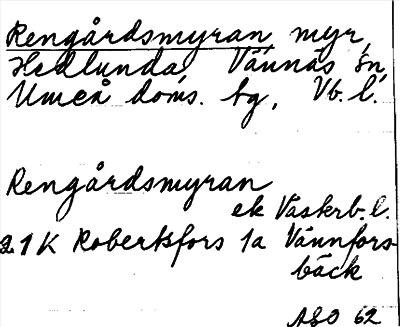 Rengårdsmyran, myr,
Hedlunda, Vännäs sn,
Umeå doms. tg, Vb. l.
Rengårdsmyran
ek Västerb. l.
21K Robertsfors 1a Vännfors
bäck
ASO 62